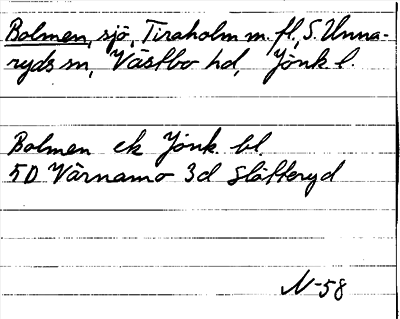 Bolmen, sjö, Tiraholm m. fl., S. Unna-
ryds sn, Västbo hd, Jönk l.
Bolmen ek Jönk. bl.
5D Värnamo 3d Slätteryd
N-58